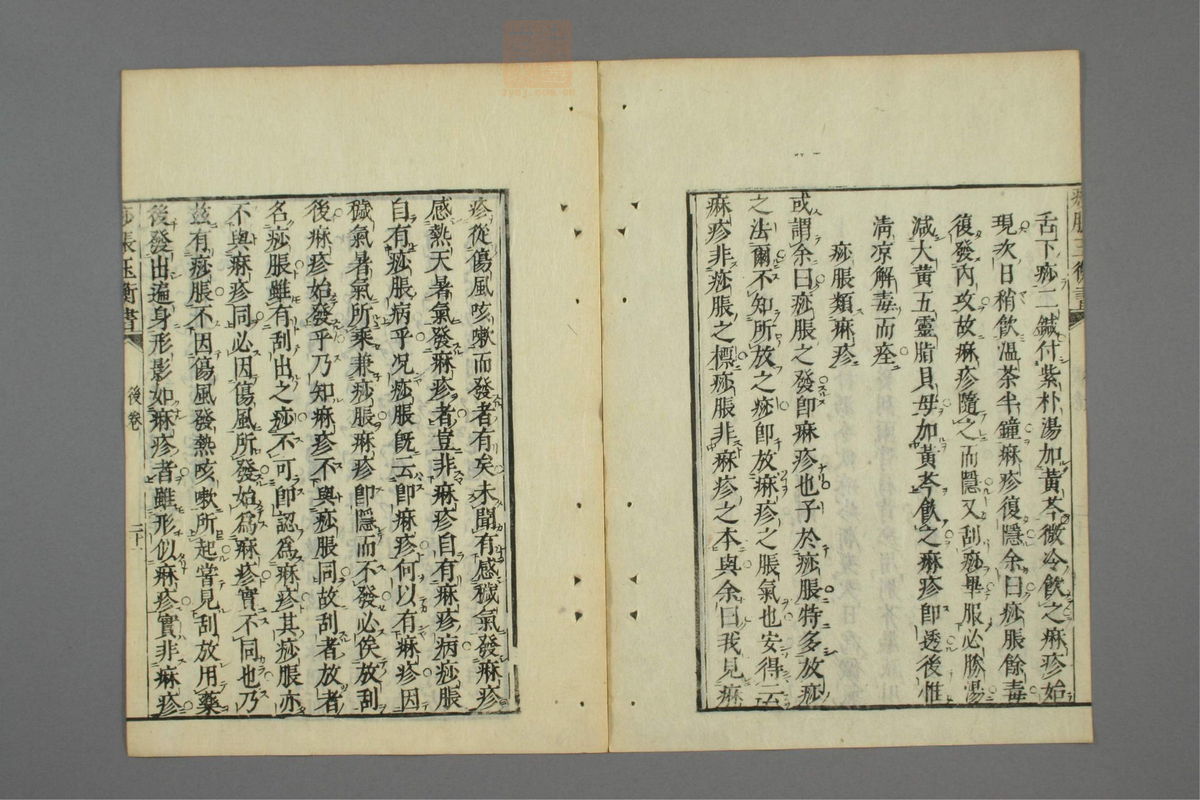 舌下痧二鍼付紫朴湯加黃芩微冷飲之麻疹始
現次日稍飲溫茶半鐘麻疹復隱余曰痧脹餘毒
復發內攻故麻疹隨之而隱又刮痧畢服必勝湯
減大黃五靈脂貝母加黃芩飲之麻疹即透後惟
清凉解毒而痊
痧脹類麻疹
或謂余曰痧脹之發即麻疹也子於痧脹特多放痧
之法爾不知所放之痧即放麻疹之脹氣也安得云
麻疹非痧脹之標痧脹非麻疹之本與余曰我見麻
疹從傷風咳嗽而發者有矣未聞有感穢氣發麻疹
感熱天暑氣發麻疹者豈非麻疹自有麻疹病痧脹
自有痧脹病乎况痧脹既云即麻疹何以有麻疹因
穢氣暑氣所乘兼痧脹麻疹即隱而不發必俟放刮
後麻疹始發乎乃知麻疹不與痧脹同故刮者放者
名痧脹雖有刮出之痧不可即認為麻疹其痧脹亦
不與麻疹同必因傷風所發始為麻疹實不同也乃
茲有痧脹不因傷風發熱咳嗽所起嘗見刮放用藥
後發出遍身形影如麻疹者雖形似麻疹實非麻疹
痧脹玉衡書
後卷
二十一